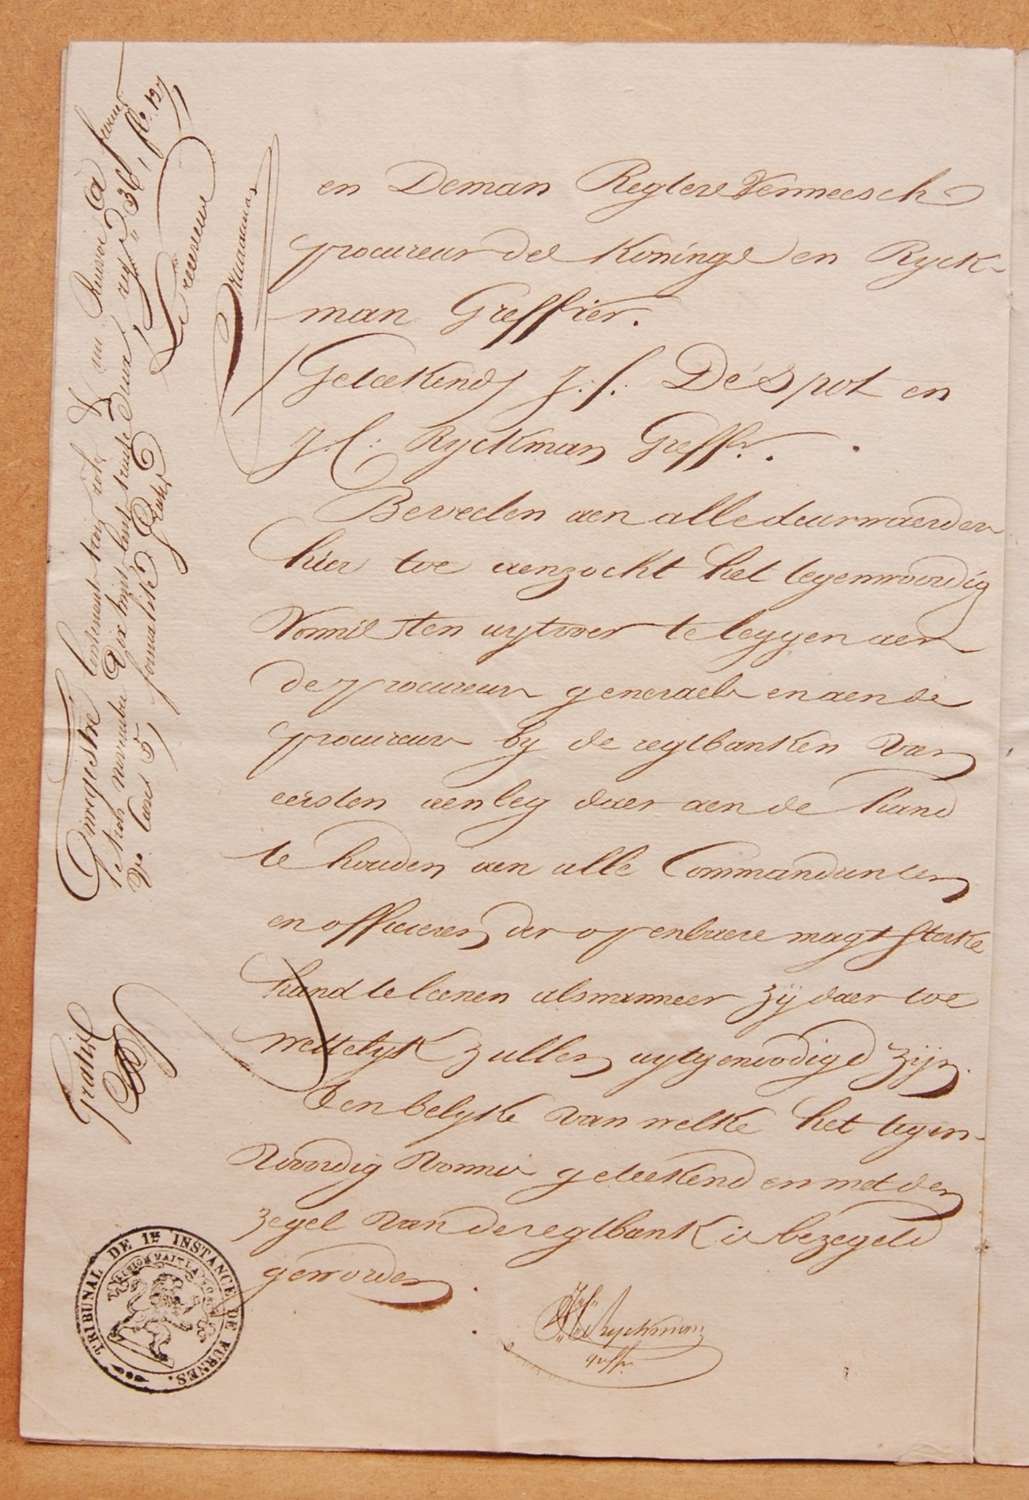 en Deman Regters Vermeesch
procureur des Konings en Ryck-
man Greffier.
(Geteekend) J. f. De Spot en
J C: Ryckman Greffr.
Bevelen aen alle deurwaerders
hier toe aenzocht het tegenwoordig
Vonnis ten uytvoer te leggen aen
de procureur generaels en aen de
procureur by de regtbanken van
eersten aenleg daer aen de hand
te houden aen alle Commandanten
en officieren der openbaere magt sterke
hand te leenen alswanneer zij daer toe
wettelyk zullen uytgenoodigd zijn.
Ten belyke van welke het tegen-
woordig vonnis geteekend en met den
zegel van de regtbank is bezegeld
geworden.
Ryckman
greffr.
Enregistré Contenant trois rôles
novembre Dix huit cent trente Deux
formalité
Le receveur
Gratis
TRIBUNAL DE 1RE INSTANCE DE FURNES.